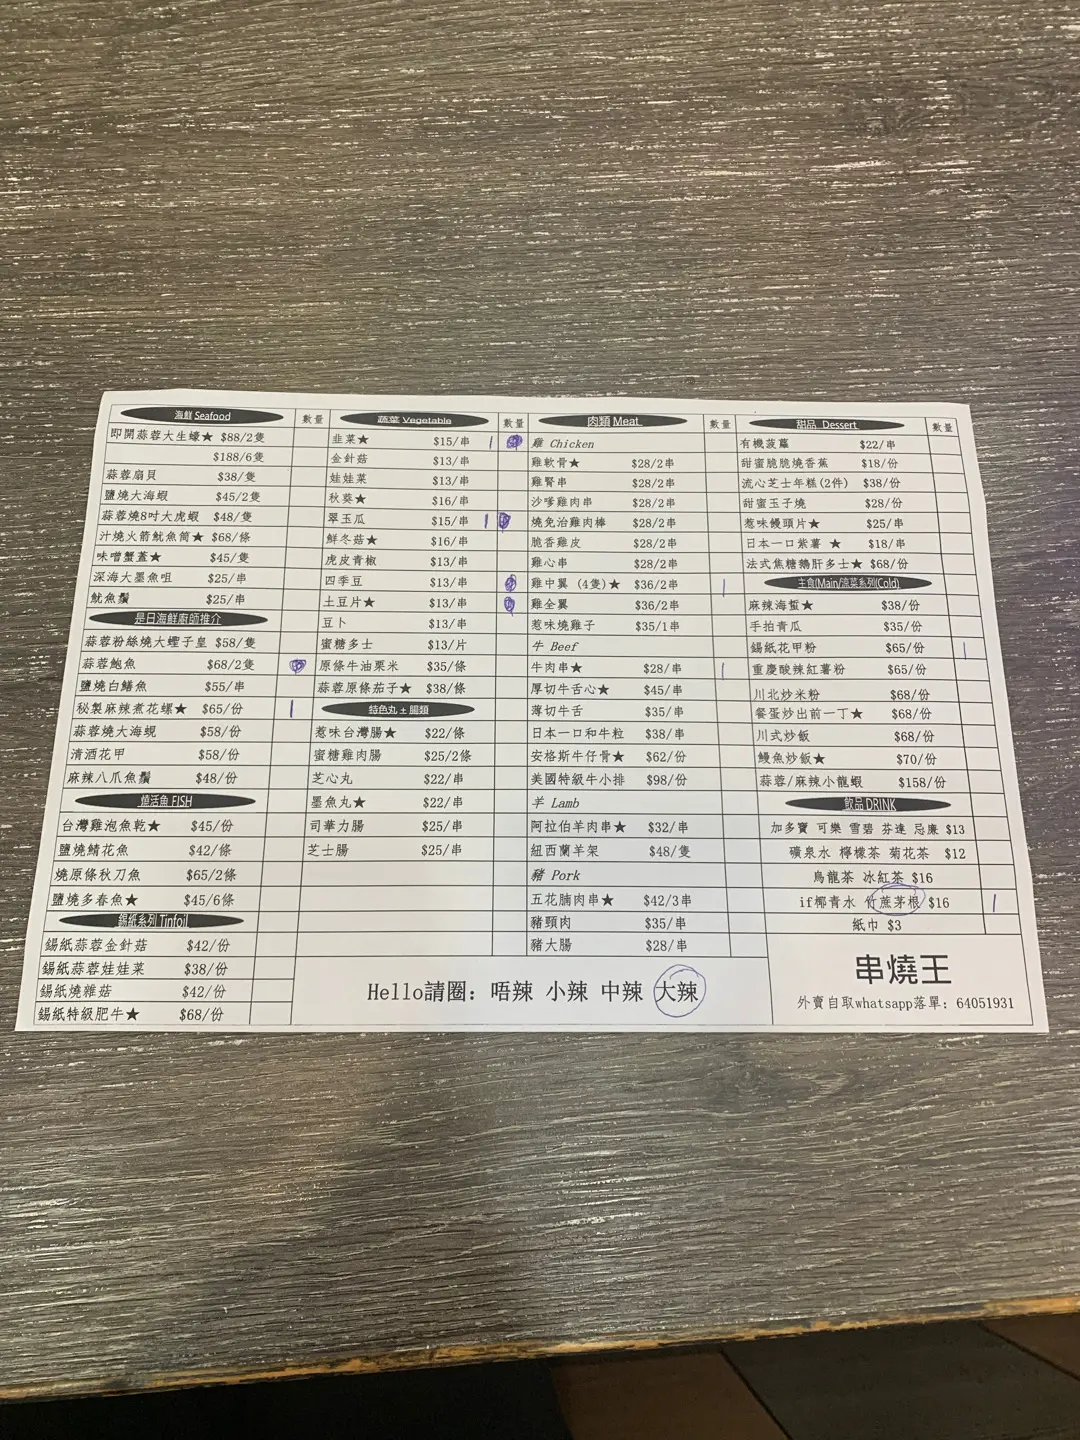 海鮮 Seafood 數量
即開蒜蓉大生蠔★ $88/2隻
$188/6隻
蒜蓉扇貝 $38/隻
鹽燒大海蝦 $45/2隻
蒜蓉燒8吋大虎蝦 $48/隻
汁燒火箭魷魚筒★ $68/條
味噌蟹蓋★ $45/隻
深海大墨魚咀 $25/串
魷魚鬚 $25/串
是日海鮮廚師推介
蒜蓉粉絲燒大蟶子皇 $58/隻
蒜蓉鮑魚 $68/2隻
鹽燒白鱔魚 $55/串
秘製麻辣煮花螺★ $65/份 1
蒜蓉燒大海蜆 $58/份
清酒花甲 $58/份
麻辣八爪魚鬚 $48/份
燒活魚 FISH
台灣雞泡魚乾★ $45/份
鹽燒鯖花魚 $42/條
燒原條秋刀魚 $65/2條
鹽燒多春魚★ $45/6條
錫紙系列 Tinfoil
錫紙蒜蓉金針菇 $42/份
錫紙蒜蓉娃娃菜 $38/份
錫紙燒雜菇 $42/份
錫紙特級肥牛★ $68/份
蔬菜 Vegetable 數量
韭菜★ $15/串 1
金針菇 $13/串
娃娃菜 $13/串
秋葵★ $16/串
翠玉瓜 $15/串 1
鮮冬菇★ $16/串
虎皮青椒 $13/串
四季豆 $13/串
土豆片★ $13/串
豆卜 $13/串
蜜糖多士 $13/片
原條牛油粟米 $35/條
蒜蓉原條茄子★ $38/條
特色丸 ± 腸類
惹味台灣腸★ $22/條
蜜糖雞肉腸 $25/2條
芝心丸 $22/串
墨魚丸★ $22/串
司華力腸 $25/串
芝士腸 $25/串
肉類 Meat 數量
雞 Chicken
雞軟骨★ $28/2串
雞腎串 $28/2串
沙嗲雞肉串 $28/2串
燒免治雞肉棒 $28/2串
脆香雞皮 $28/2串
雞心串 $28/2串
雞中翼 (4隻)★ $36/2串 1
雞全翼 $36/2串
惹味燒雞子 $35/1串
牛 Beef
牛肉串★ $28/串 1
厚切牛舌心★ $45/串
薄切牛舌 $35/串
日本一口和牛粒 $38/串
安格斯牛仔骨★ $62/份
美國特級牛小排 $98/份
羊 Lamb
阿拉伯羊肉串★ $32/串
紐西蘭羊架 $48/隻
豬 Pork
五花腩肉串★ $42/3串
豬頸肉 $35/串
豬大腸 $28/串
甜品 Dessert 數量
有機菠蘿 $22/串
甜蜜脆脆燒香蕉 $18/份
流心芝士年糕(2件) $38/份
甜蜜玉子燒 $28/份
惹味饅頭片★ $25/串
日本一口紫薯 ★ $18/串
法式焦糖鵝肝多士★ $68/份
主食(Main/涼菜系列(Cold)
麻辣海蜇★ $38/份
手拍青瓜 $35/份
錫紙花甲粉 $65/份 1
重慶酸辣紅薯粉 $65/份
川北炒米粉 $68/份
餐蛋炒出前一丁★ $68/份
川式炒飯 $68/份
鰻魚炒飯★ $70/份
蒜蓉/麻辣小龍蝦 $158/份
飲品 DRINK
加多寶 可樂 雪碧 芬達 忌廉 $13
礦泉水 檸檬茶 菊花茶 $12
烏龍茶 冰紅茶 $16
if椰青水 竹蔗茅根 $16 1
紙巾 $3
Hello請圈: 唔辣 小辣 中辣 大辣
串燒王
外賣自取whatsapp落單: 64051931